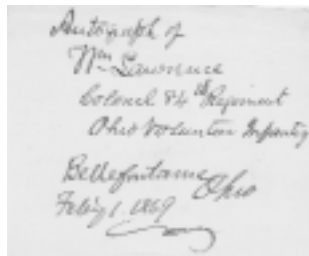 Autograph of
Wm Lawrence
Colonel 84th Regiment
Ohio Volunteer Infantry
Bellefontaine Ohio
1869